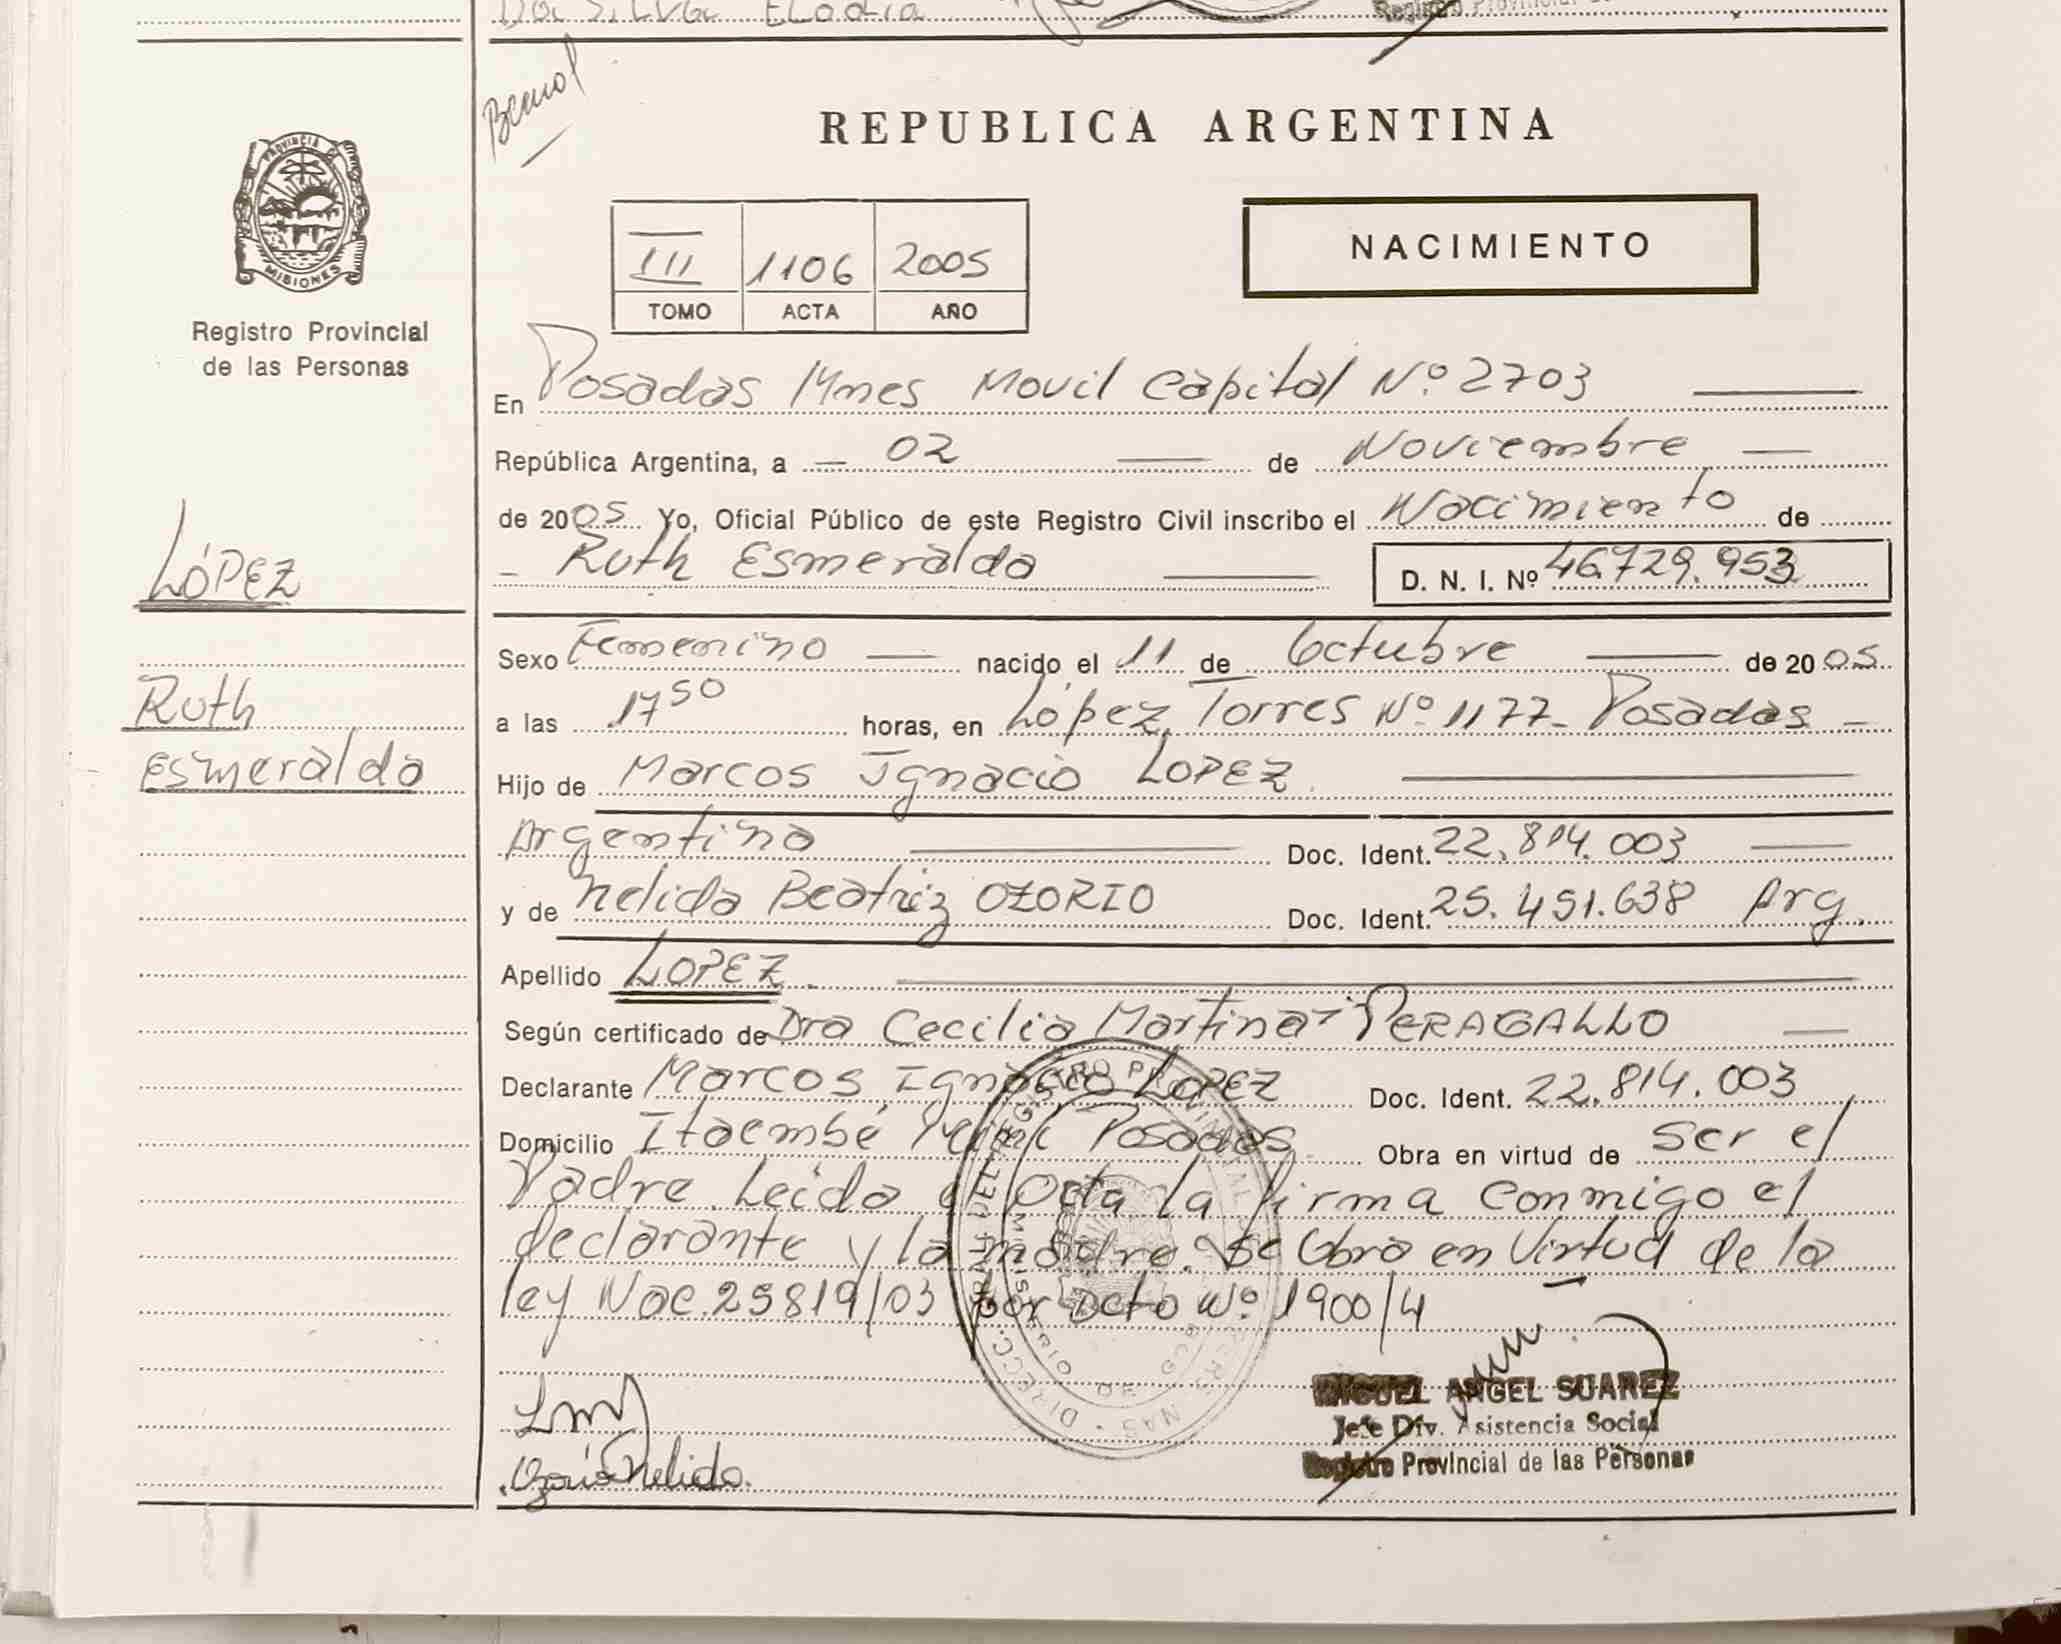 Da Silva Elodia
Bernal
REPUBLICA ARGENTINA
PROVINCIA DE
MISIONES
Registro Provincial
de las Personas
III 1106 2005
TOMO ACTA AÑO
NACIMIENTO
En Posadas Mnes Movil Capital Nº 2703
República Argentina, a 02 de Noviembre
de 2005 Yo, Oficial Público de este Registro Civil inscribo el Nacimiento de
Ruth Esmeralda
D. N. I. Nº 46.729.953
LÓPEZ
Ruth
Esmeralda
Sexo Femenino nacido el 11 de Octubre de 2005
a las 17 50 horas, en López Torres Nº 1177- Posadas
Hijo de Marcos Ignacio LOPEZ
Argentino Doc. Ident. 22.814.003
y de Nelida Beatriz OZORIO Doc. Ident. 25.451.638 Arg.
Apellido LOPEZ
Según certificado de Dra Cecilia Martina PERAGALLO
Declarante Marcos Ignacio LOPEZ Doc. Ident. 22.814.003
Domicilio Itaembé Posadas Obra en virtud de ser el
Padre. Leida el acta la firma conmigo el
declarante y la madre. Se Obra en Virtud de la
ley Nac. 25819/03 por Dcto Nº 1900/4
Ozorio Nelida.
MIGUEL ANGEL SUAREZ
Jefe Div. Asistencia Social
Registro Provincial de las Personas